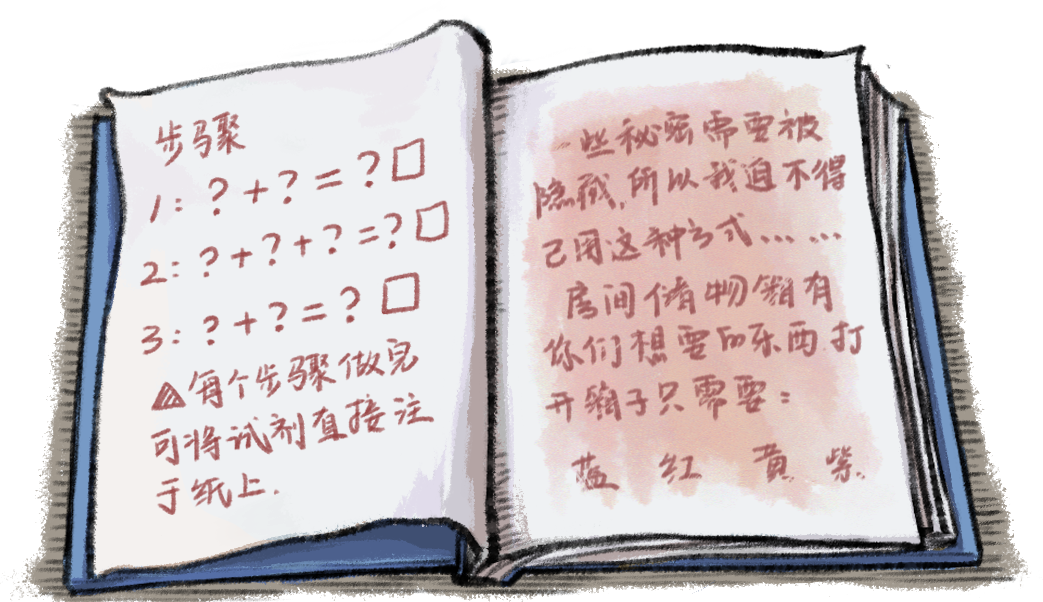 步骤
1：？+？=？□
2：？+？+？=？□
3：？+？=？□
▲每个步骤做完
可将试剂直接注
于纸上.
一些秘密需要被
隐藏,所以我迫不得
已用这种方式……
房间储物箱有
你们想要的东西.打
开箱子只需要：
蓝 红 黄 紫.